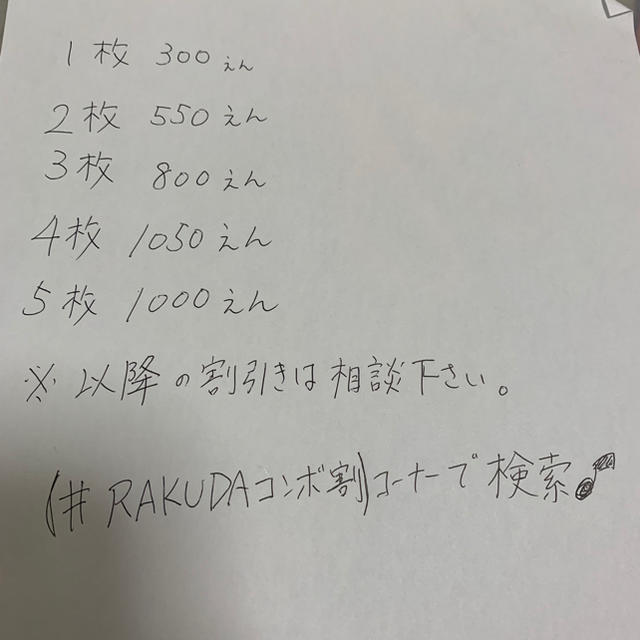 1枚 300えん
2枚 550えん
3枚 800えん
4枚 1050えん
5枚 1000えん
※以降の割引きは相談下さい。
(#RAKUDAコンボ割)コーナーで検索♪